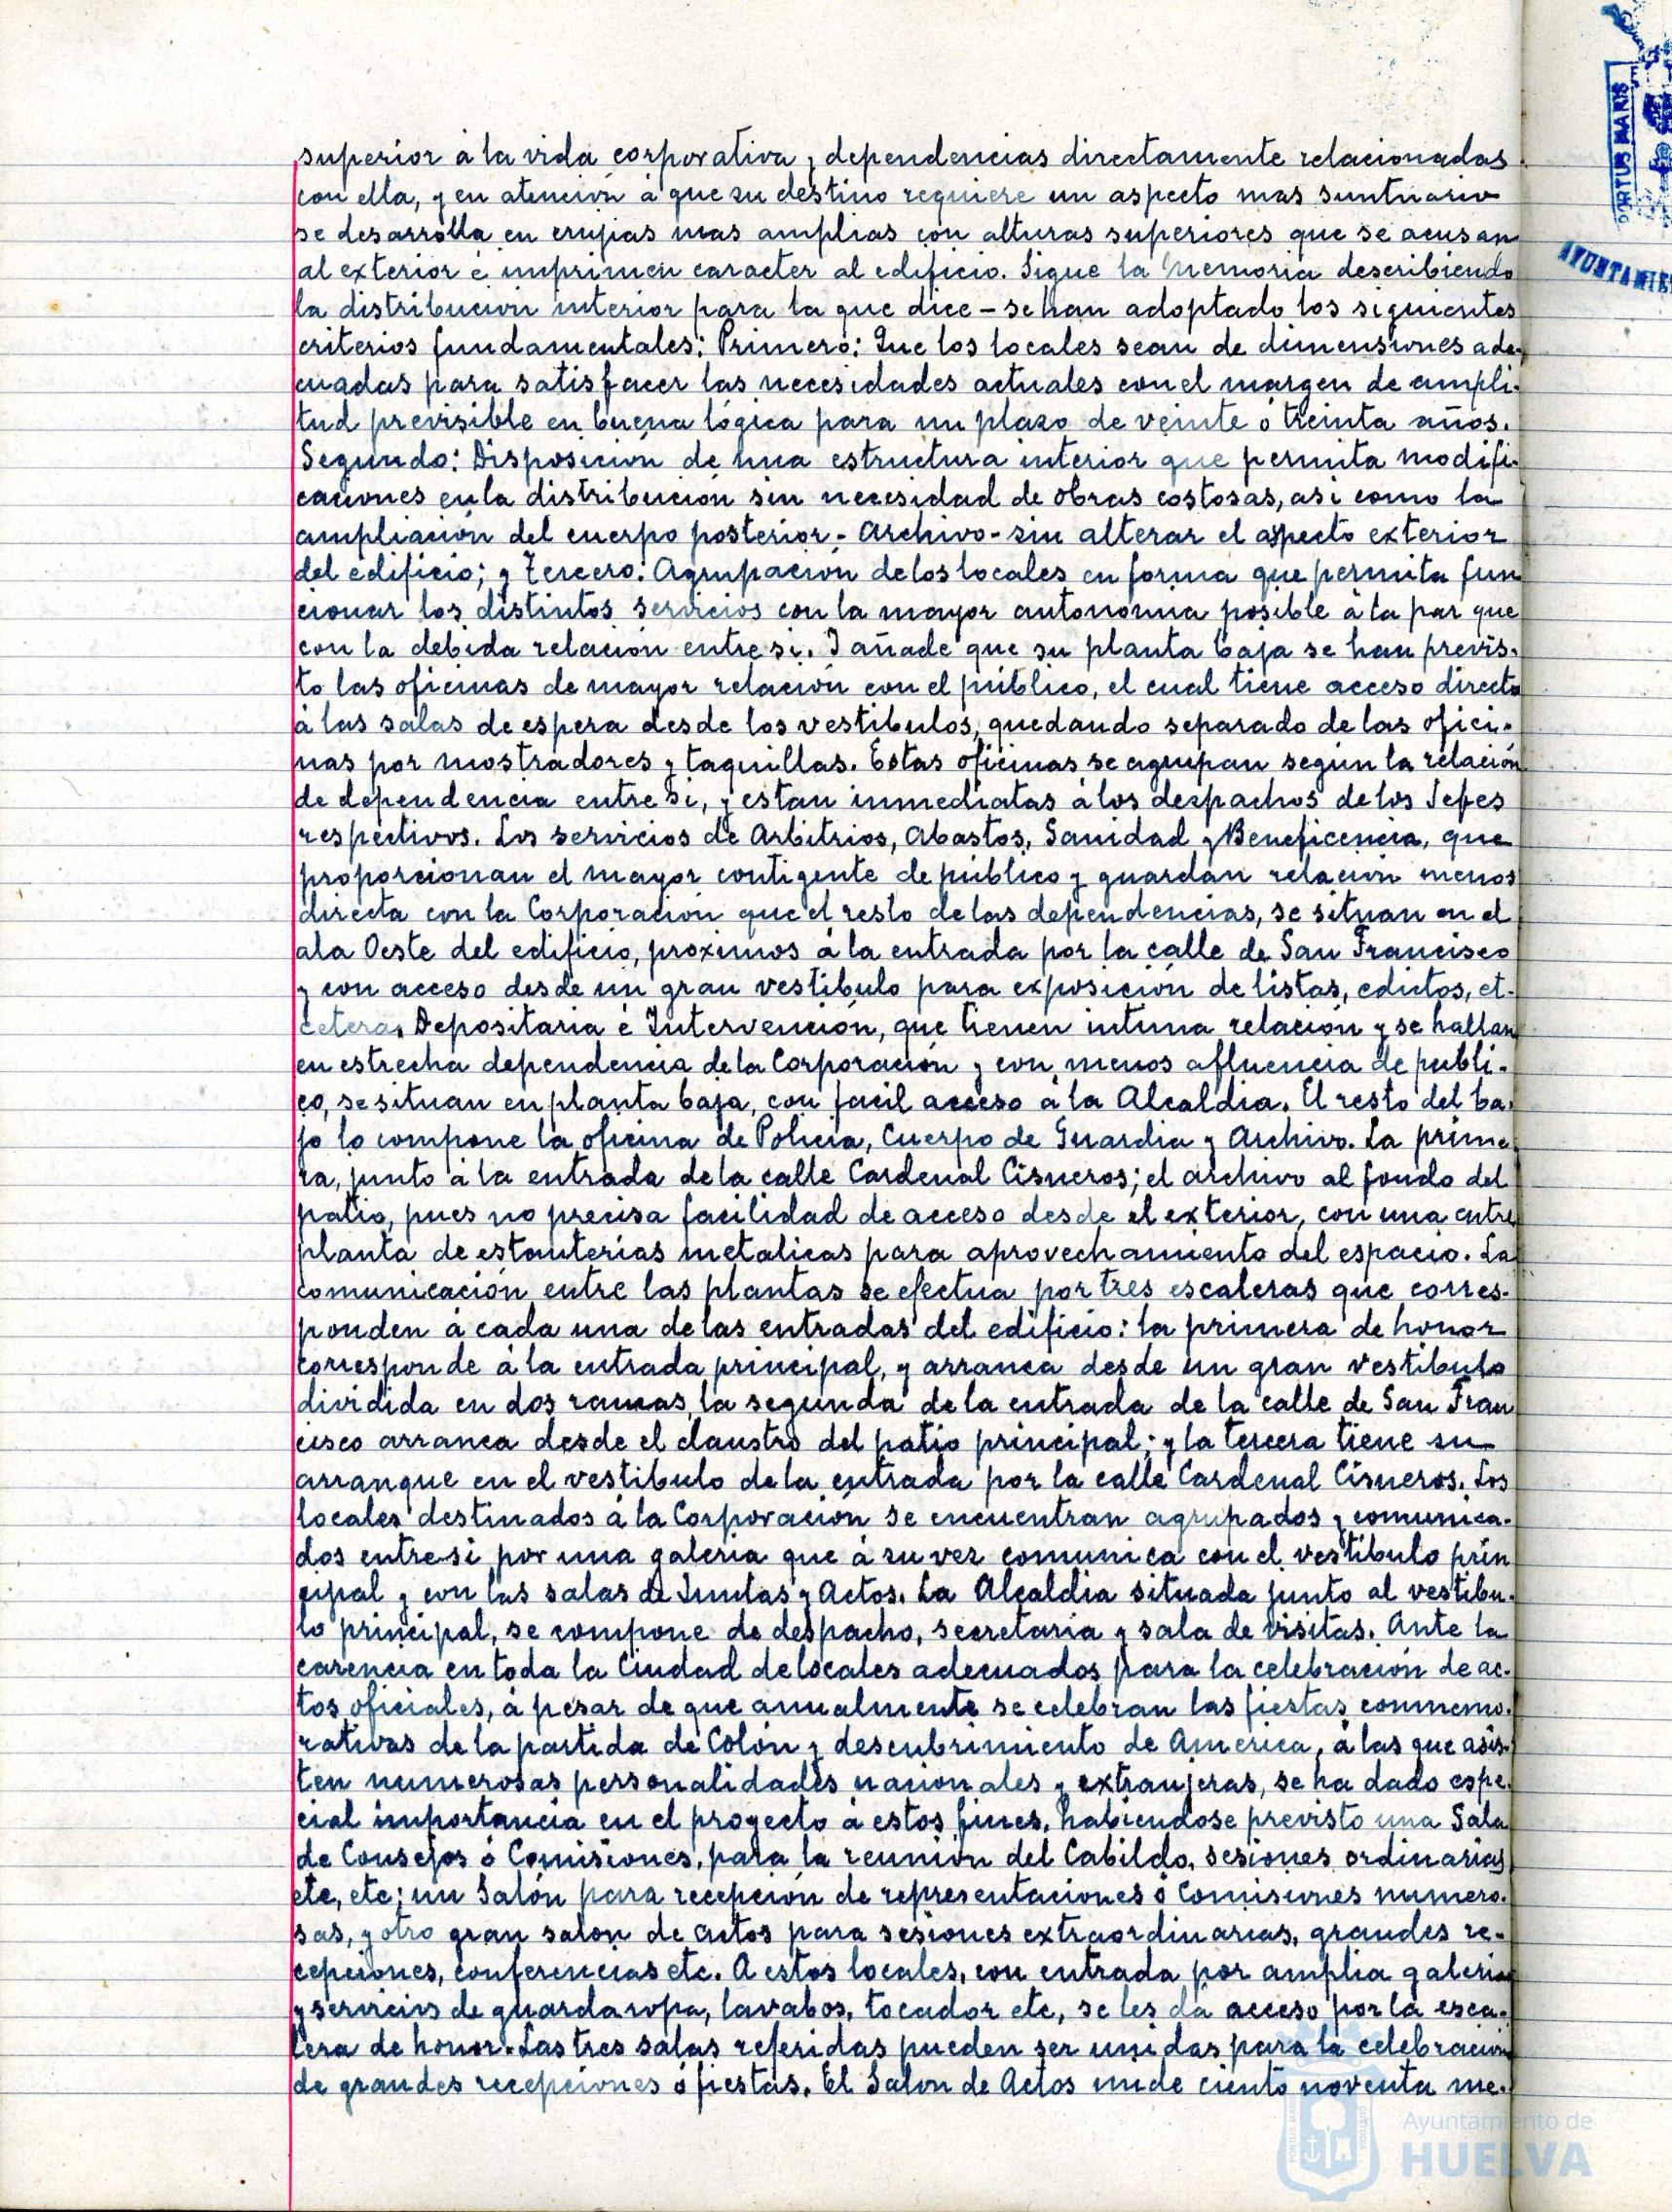 superior á la vida corporativa y dependencias directamente relacionadas
con ella, y en atención á que su destino requiere un aspecto mas suntuario
se desarrolla en crujias mas amplias con alturas superiores que se acusan
al exterior é imprimen caracter al edificio. Sigue la Memoria describiendo
la distribución interior para la que dice - se han adoptado los siguientes
criterios fundamentales: Primero: Que los locales sean de dimensiones ade-
cuadas para satisfacer las necesidades actuales con el margen de ampli-
tud previsible en buena lógica para un plazo de veinte ó treinta años.
Segundo: Disposición de una estructura interior que permita modifi-
caciones en la distribución sin necesidad de obras costosas, asi como la
ampliación del cuerpo posterior - Archivo - sin alterar el aspecto exterior
del edificio; y Tercero: Agrupación de los locales en forma que permita fun
cionar los distintos servicios con la mayor autonomia posible á la par que
con la debida relación entre si. Y añade que su planta baja se han previs-
to las oficinas de mayor relación con el público, el cual tiene acceso directo
á las salas de espera desde los vestibulos, quedando separado de las ofici-
nas por mostradores y taquillas. Estas oficinas se agrupan según la relación
de dependencia entre si, y estan inmediatas á los despachos de los Jefes
respectivos. Los servicios de Arbitrios, Abastos, Sanidad y Beneficencia, que
proporcionan el mayor contigente de público y guardan relación menos
directa con la Corporación que el resto de las dependencias, se situan en el
ala Oeste del edificio, proximos á la entrada por la calle de San Francisco
y con acceso desde un gran vestibulo para exposición de listas, edictos, et-
cetera. Depositaria é Intervención, que tienen intima relación y se hallan
en estrecha dependencia de la Corporación y con menos afluencia de publi-
co, se situan en planta baja, con facil acceso á la Alcaldia. El resto del ba-
jo lo compone la oficina de Policia, Cuerpo de Guardia y Archivo. La prime-
ra, junto á la entrada de la calle Cardenal Cisneros; el archivo al fondo del
patio, pues no precisa facilidad de acceso desde el exterior, con una entre
planta de estanterias metalicas para aprovechamiento del espacio. La
comunicación entre las plantas se efectua por tres escaleras que corres-
ponden á cada una de las entradas del edificio: la primera de honor
corresponde á la entrada principal, y arranca desde un gran vestibulo
dividida en dos ramas, la segunda de la entrada de la calle de San Fran
cisco arranca desde el claustro del patio principal; y la tercera tiene su
arranque en el vestibulo de la entrada por la calle Cardenal Cisneros. Los
locales destinados á la Corporación se encuentran agrupados y comunica-
dos entre si por una galeria que á su vez comunica con el vestibulo prin
cipal y con las salas de Juntas y Actos. La Alcaldia situada junto al vestibu-
lo principal, se compone de despacho, secretaria y sala de visitas. Ante la
carencia en toda la Ciudad de locales adecuados para la celebración de ac-
tos oficiales, á pesar de que anualmente se celebran las fiestas conmemo-
rativas de la partida de Colón y descubrimiento de America, á las que asis-
ten numerosas personalidades nacionales y extranjeras, se ha dado espe-
cial importancia en el proyecto á estos fines, habiendose previsto una Sala
de Consejos ó Comisiones, para la reunión del Cabildo, sesiones ordinarias
etc, etc; un Salón para recepción de representaciones ó Comisiones numero-
sas, y otro gran salon de actos para sesiones extraordinarias, grandes re-
cepciones, conferencias etc. A estos locales, con entrada por amplia galeria
y servicios de guardaropa, lavabos, tocador etc, se les dá acceso por la esca-
lera de honor. Las tres salas referidas pueden ser unidas para la celebración
de grandes recepciones ó fiestas. El Salon de Actos mide ciento noventa me-
PORTUS MARIS
AYUNTAMIE
Ayuntamiento de
HUELVA